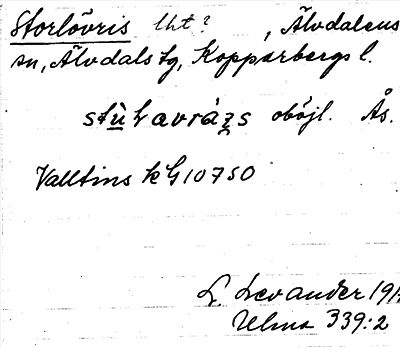 Storlövris lht? , Älvdalens
sn, Älvdals tg, Kopparbergs l.
obojl. Ås.
Valltins k G10750
L. Levander
Ulma 339:2